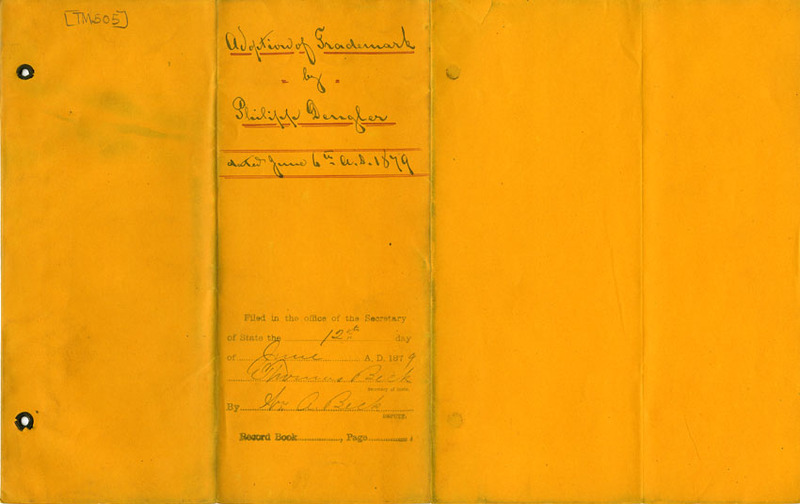 [TM505]
Adoption of Trademark
by
Philipp Dengler
dated June 6th A.D. 1879
Filed in the office of the Secretary
of State the 12th day
of June A. D. 1879
Thomas Beck
Secretary of State.
By Wm A. Beck
DEPUTY.
Record Book , Page